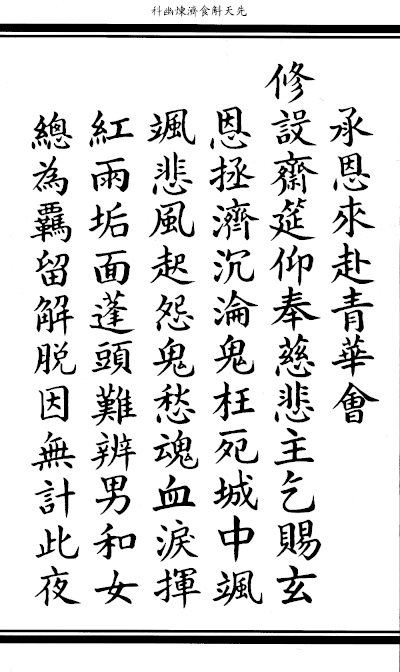 先天斛食濟煉幽科
承恩來赴青華會
修設齋筵仰奉慈悲主乞賜玄
恩拯濟沉淪鬼枉死城中颯
颯悲風起怨鬼愁魂血淚揮
紅雨垢面蓬頭難辨男和女
總為羈留解脫因無計此夜